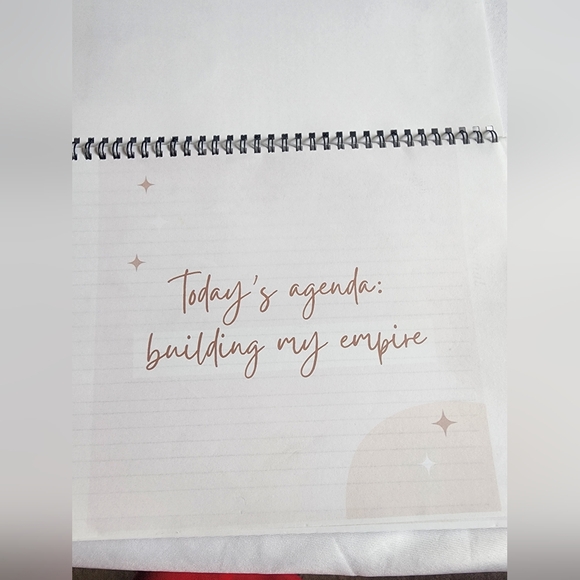 Today's agenda:
building my empire